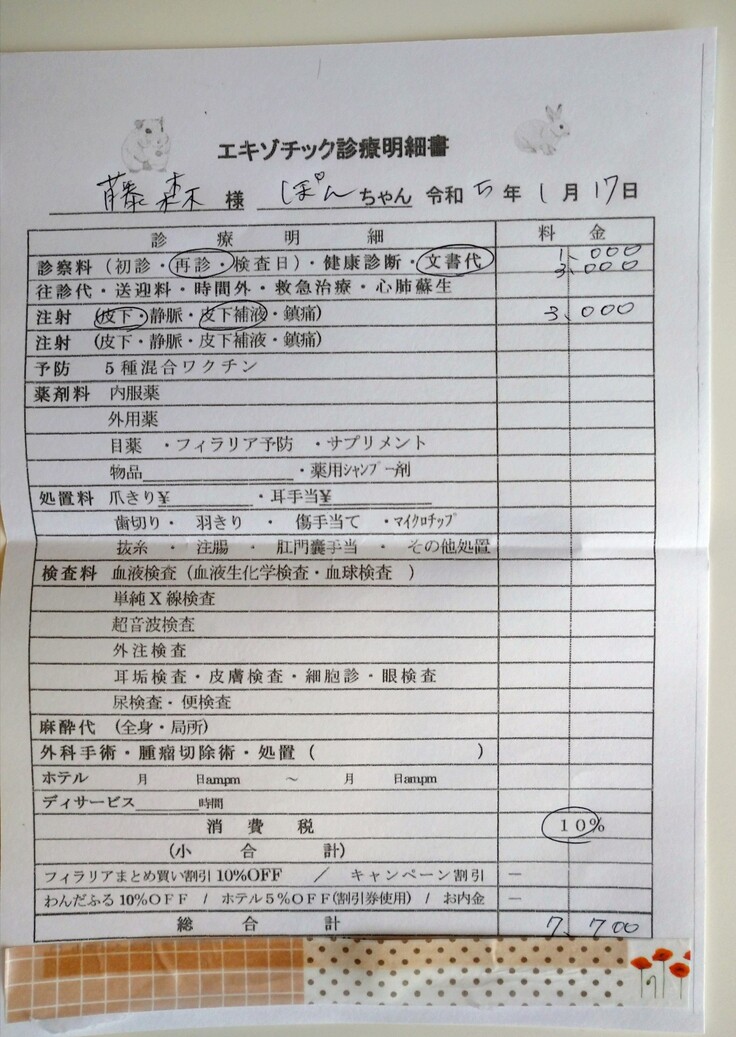 エキゾチック診療明細書
藤森 様 ぽん ちゃん 令和 5 年 1 月 17 日
診療明細 料金
診察料 (初診・再診・検査日)・健康診断・文書代 1,000
3,000
往診代・送迎料・時間外・救急治療・心肺蘇生
注射 (皮下・静脈・皮下補液・鎮痛) 3,000
注射 (皮下・静脈・皮下補液・鎮痛)
予防 5種混合ワクチン
薬剤料 内服薬
外用薬
目薬 ・フィラリア予防 ・サプリメント
物品 ・薬用シャンプー剤
処置料 爪きり¥ ・耳手当¥
歯切り・ 羽きり ・ 傷手当て ・マイクロチップ
抜糸 ・ 注腸 ・ 肛門嚢手当 ・ その他処置
検査料 血液検査 (血液生化学検査・血球検査 )
単純X線検査
超音波検査
外注検査
耳垢検査・皮膚検査・細胞診・眼検査
尿検査・便検査
麻酔代 (全身・局所)
外科手術・腫瘤切除術・処置 ( )
ホテル 月 日am.pm ～ 月 日am.pm
デイサービス 時間
消費税 10%
(小合計)
フィラリアまとめ買い割引10%OFF / キャンペーン割引 －
わんだふる10%OFF / ホテル5%OFF(割引券使用) / お内金 －
総合計 7,700